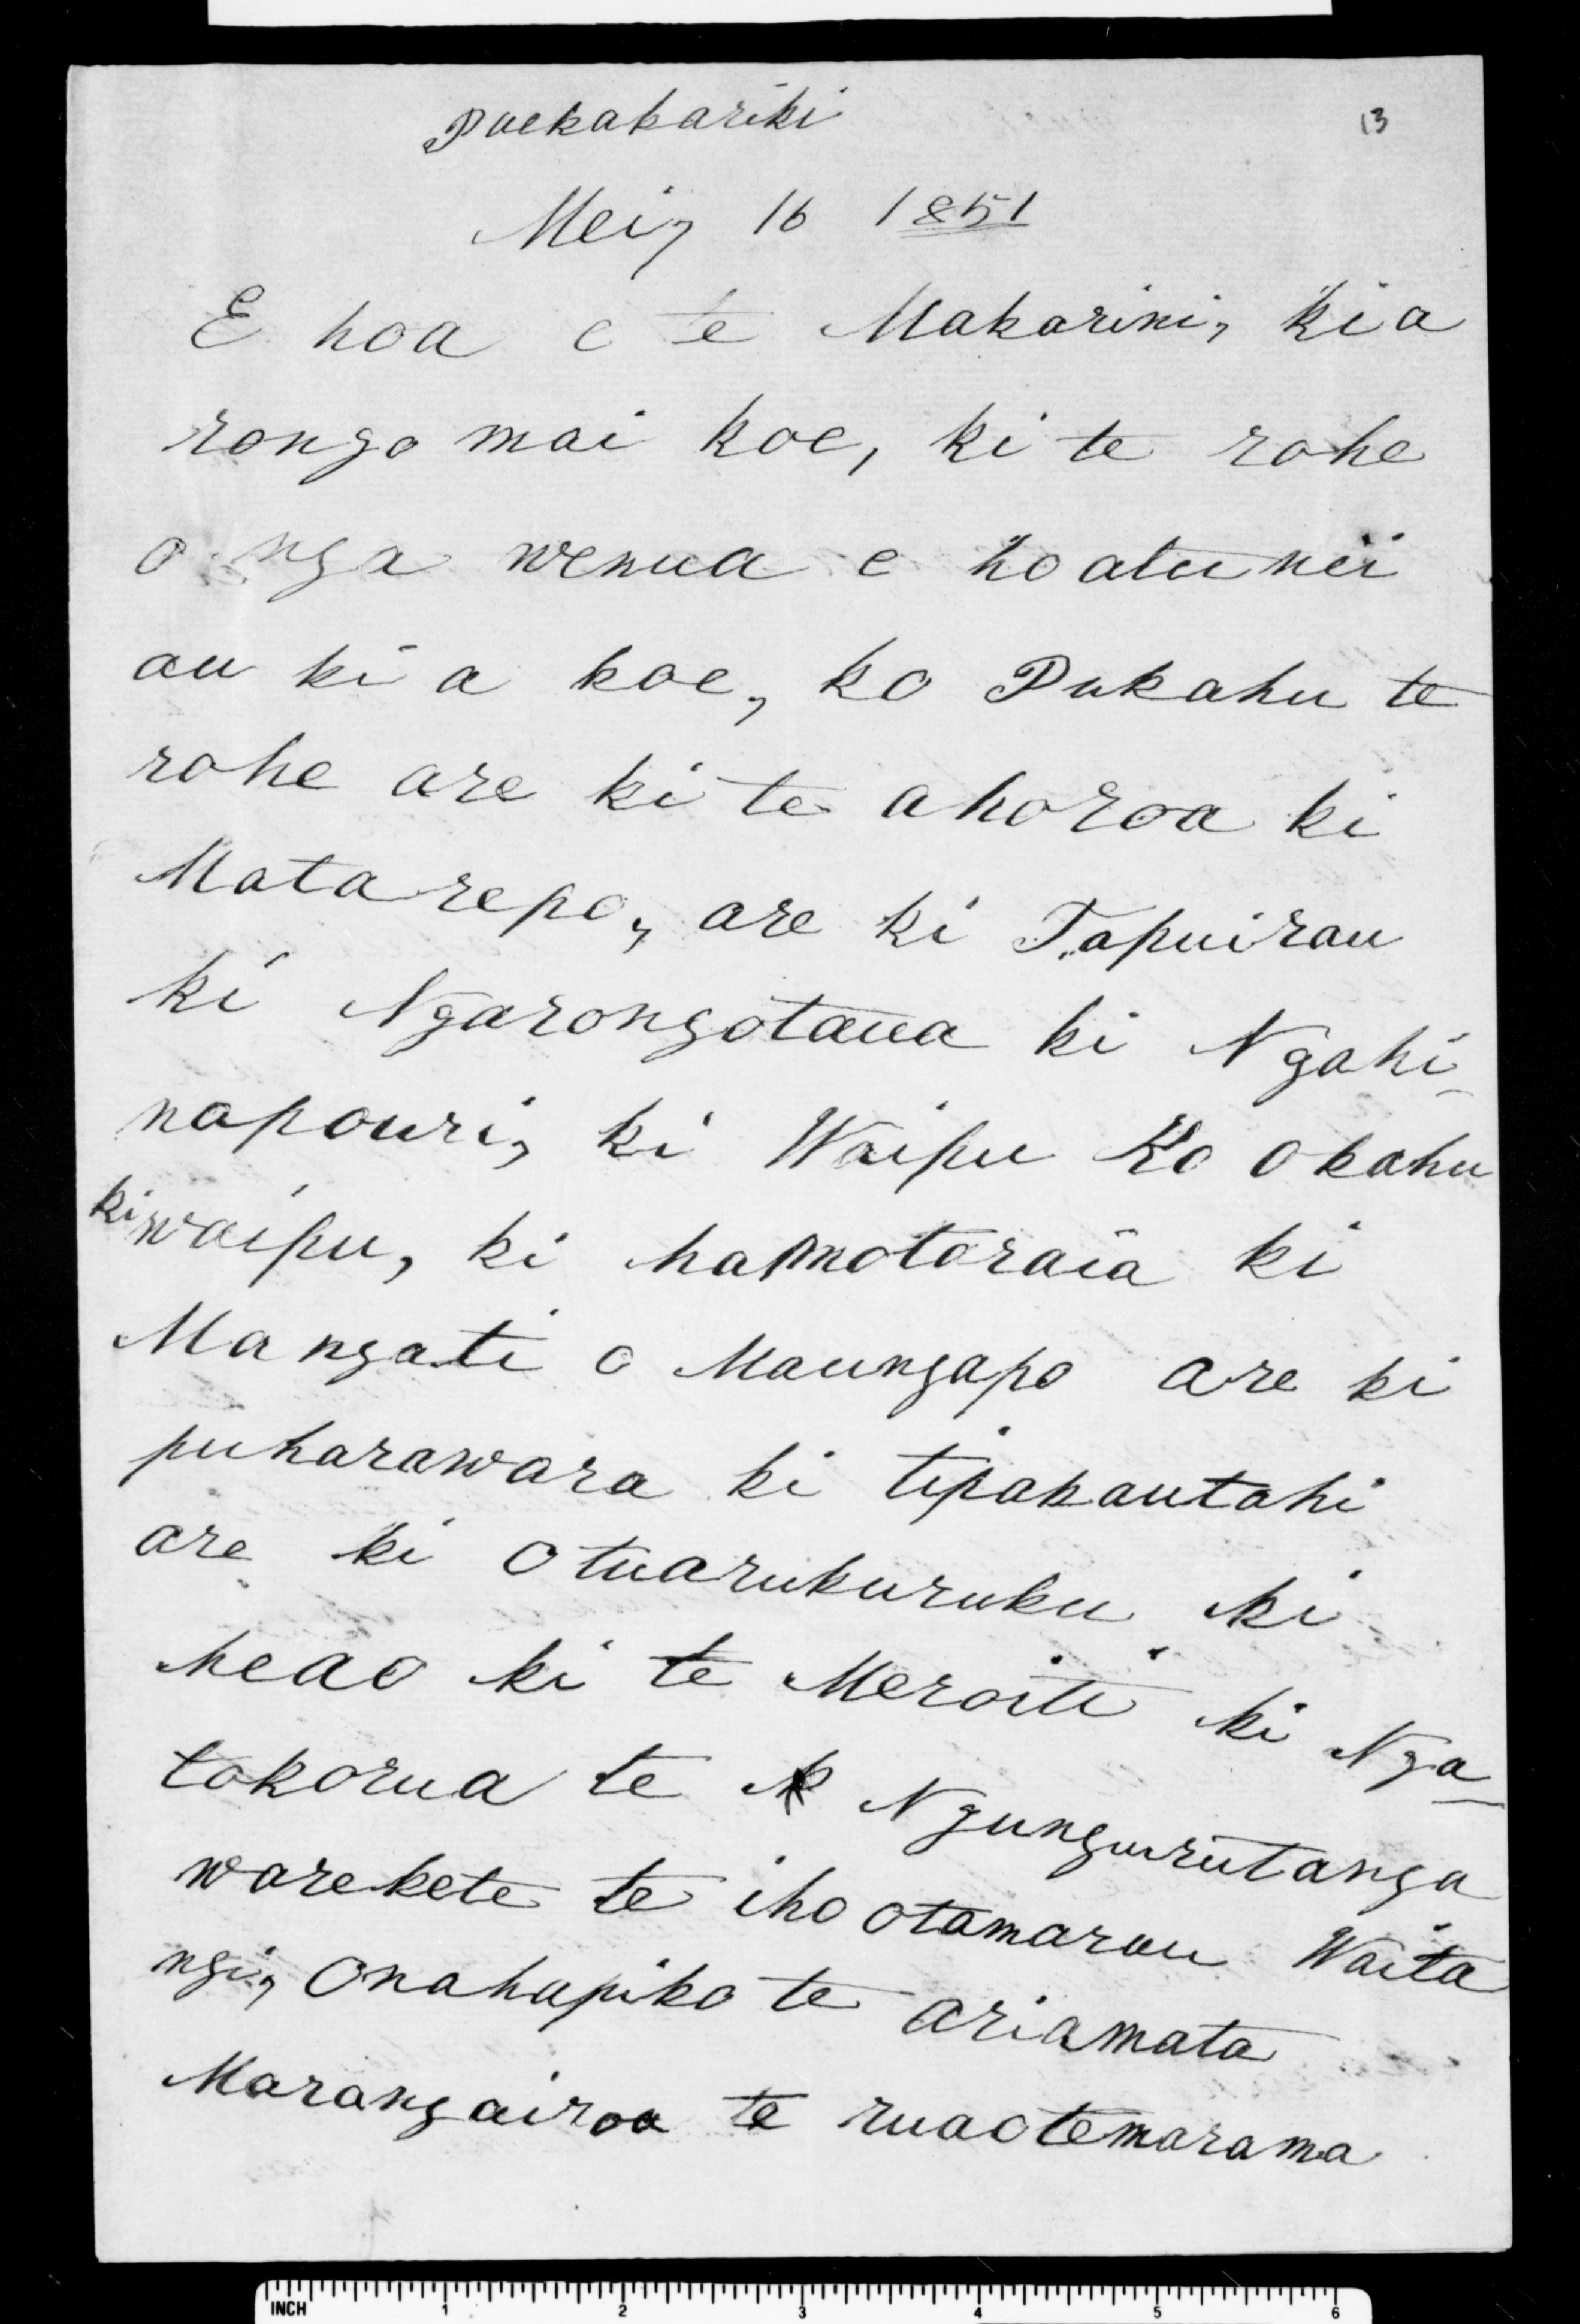 Paekakariki
13
Mei, 16 1851
E hoa e te Makarini, kia
rongo mai koe, ki te rohe
o nga wenua e hoatu nei
au ki a koe, ko Pukahu te
rohe are ki te ahoroa ki
Matarepo, are ki Tapuirau
ki Ngarongotaua ki Ngahi-
napouri, ki Waipu Ko Okahu
ki waipu, ki hamotoraia ki
Mangati o Maungapo are ki
puharawara ki tipakautahi
are ki Otuarukuruku ki
heao ki te Meroiti ki Nga-
tokorua te Ngungurutanga
warekete te iho otamarau Waita
ngi, Onahapiko te ariamata
Marangairoa te ruaotemarama
INCH 1 2 3 4 5 6